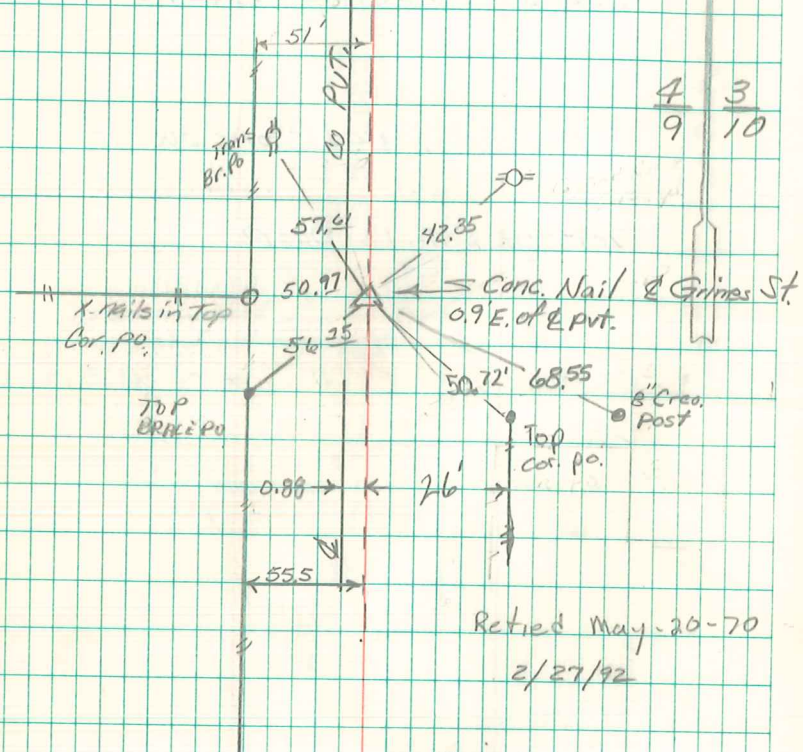 51'
℄ PVT.
4 3
9 10
Trans
Br. Po
57.61
42.35
50.97
Conc. Nail ℄ Grimes St.
0.9' E. of ℄ pvt.
X-nails in Top
Cor. po.
56.25
50.72'
68.55
8" Creo.
Post
TOP
BRACE PO
Top
Cor. po.
0.88
26'
℄
55.5
Retied May-20-70
2/27/92